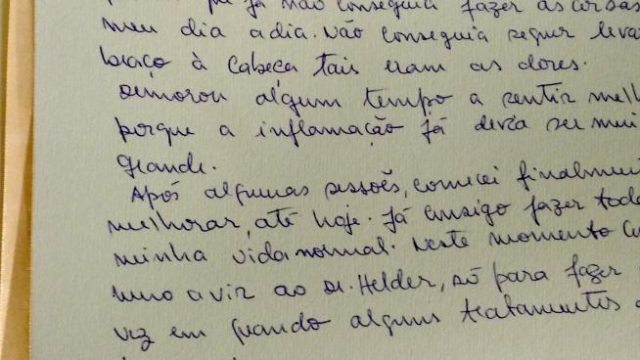 já não conseguia fazer as coisas
meu dia a dia. Não conseguia sequer leva
braço à cabeça tais eram as dores.
Demorou algum tempo a sentir melh
porque a inflamação já devia ser mui
grande.
Após algumas sessões, comecei finalmen
melhorar, até hoje. Já consigo fazer tod
minha vida normal. Neste momento
a vir ao Dr. Helder, só para fazer
vez em quando alguns tratamentos